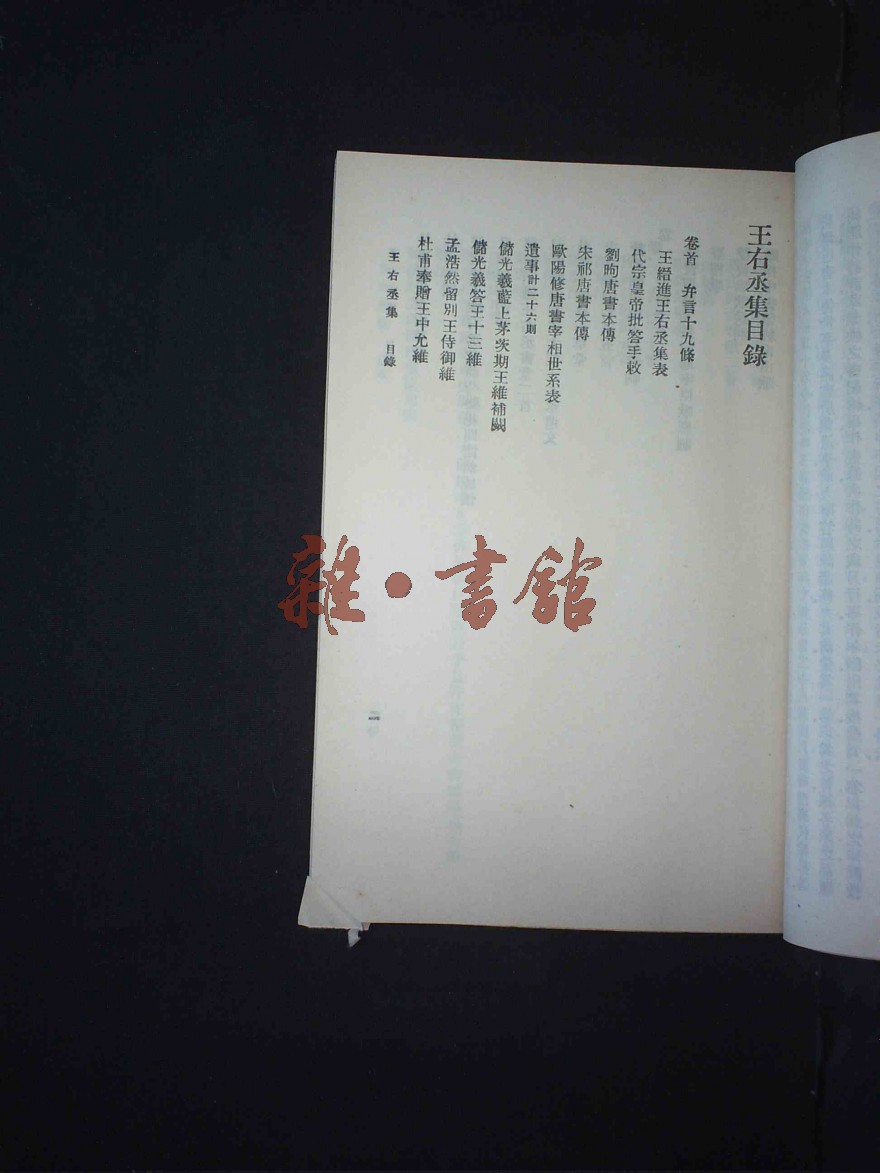 王右丞集目錄
卷首　弁言十九條
王縉進王右丞集表
代宗皇帝批答手敕
劉昫唐書本傳
宋祁唐書本傳
歐陽修唐書宰相世系表
遺事計二十六則
儲光羲藍上茅茨期王維補闕
儲光羲答王十三維
孟浩然留別王侍御維
杜甫奉贈王中允維
王右丞集　目錄
一
雜・書館